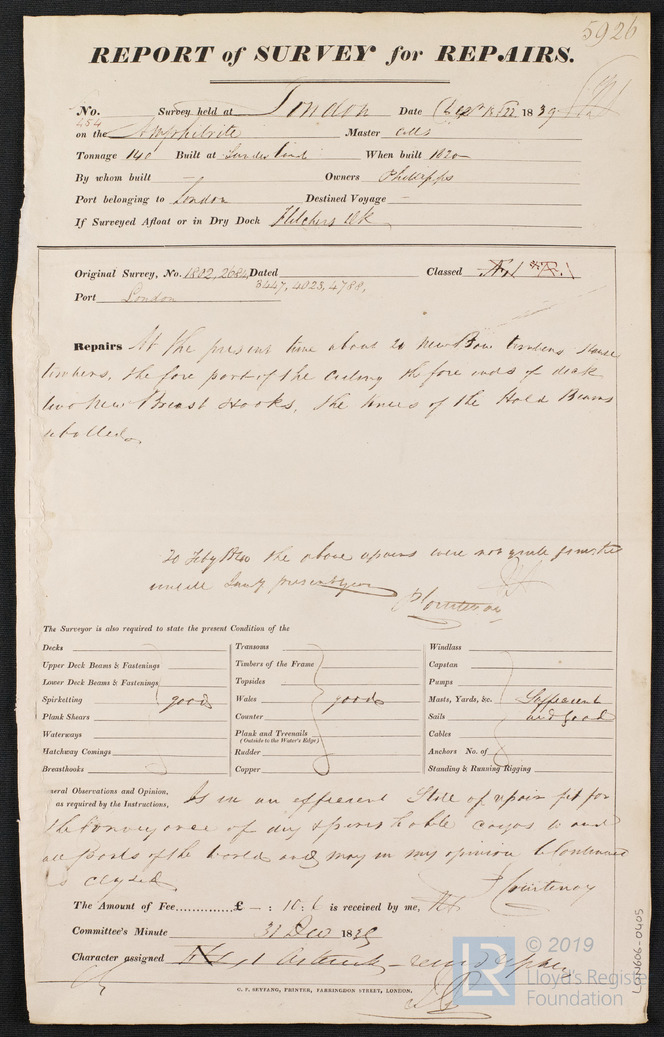 5926
REPORT of SURVEY for REPAIRS.
No. Survey held at London Date 1839
454
on the Amphitrite Master
Tonnage 140 Built at Sunderland When built 1820
By whom built — Owners Phillipps
Port belonging to London Destined Voyage —
If Surveyed Afloat or in Dry Dock Fletchers Dk
Original Survey, No. 1802, 2684, Dated Classed
3447, 4023, 4788,
Port London
Repairs At the present time about 20 New Bow timbers Hause
timbers, the fore part of the ceiling the fore ends of deck
two New Breast Hooks, the knees of the Hold Beams
rebolted
20 Feby 1840 the above repairs were not
until present year
Courtenay
The Surveyor is also required to state the present Condition of the
Decks Transoms Windlass
Upper Deck Beams & Fastenings Timbers of the Frame Capstan
Lower Deck Beams & Fastenings Topsides Pumps
Spirketting good Wales good Masts, Yards, &c. Sufficient
Plank Shears Counter Sails and good
Waterways Plank and Treenails Cables
(Outside to the Water's Edge)
Hatchway Comings Rudder Anchors No. of
Breasthooks Copper Standing & Running Rigging
neral Observations and Opinion, Is in an efficient State of repair fit for
as required by the Instructions,
the Conveyance of dry & perishable cargos to and
all Ports of the world and may in my opinion be Continued
as
Courtenay
The Amount of Fee............£ — : 10 : 6 is received by me,
Committee's Minute 31 Dec 1839
Character assigned
C. F. SEYFANG, PRINTER, FARRINGDON STREET, LONDON.
LON606-0405
LR
© 2019
Lloyd's Registe
Foundation